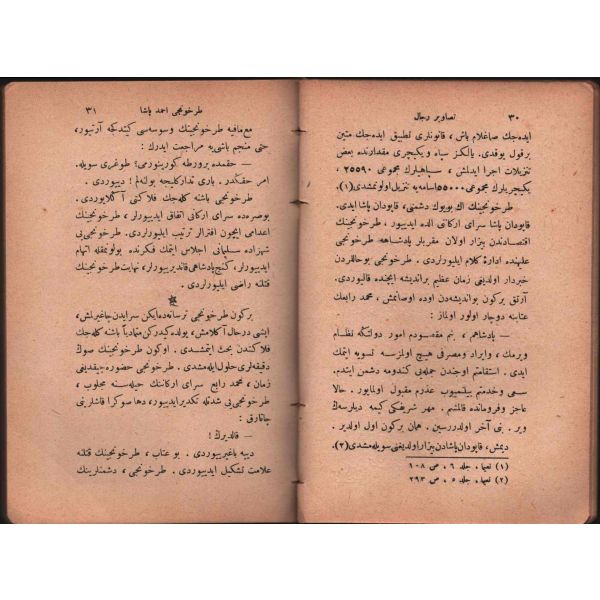 ٣٠ تصاویر رجال
ایده‌جك صاغلام باش، قانونلری تطبیق ایده‌جك متین
برقول یوقدی. یالكز سپاه ویكیچری مقدارنده بعض
تنزیلات اجرا ایدلمش، سپاهیلرك مجموعی ٢٥٥٩٠ ،
یكیچریلرك مجموعی ٥٥٠٠٠ اسامه‌یه تنزیل اولونمشدی (١).
طرخونجینك اك بویوك دشمنی، قاپودان پاشا ایدی.
قاپودان پاشا سرای اركانی الده ایدییور، طرخونجینك
اقتصادندن بیزار اولان مقربلر پادشاهه طرخونجی
علیهنده ادارۀ كلام ایلیورلردی. طرخونجی بوحالدن
خبردار اولدیغی زمان عظیم براندیشه ایچنده قالیوردی.
آرتق بركون بواندیشه‌دن اوده اوصانمش، محمد رابعك
عتابنه دوچار اولور اولماز:
— پادشاهم، بنم مقصودم امور دولتكه نظام
ویرمك، وایراد ومصرفی هیچ اولمزسه تسویه ایتمك
ایدی. استقامتم اوجندن جمله‌یی كندومه دشمن ایتدم.
سعی وخدمتم بیلنمیوب عذرم مقبول اولمایور. حالا
عاجز وفرومانده قالمشم. مهر شریفكی كیمه دیلرسه‌ك
ویر. بنی آخر اولدررسین. همان بركون اول اولدیر.
دیمش، قاپودان پاشادن بیزار اولدیغنی سویله‌مشدی (٢).
(١) نعیما، جلد ٦، ص ١٠٨
(٢) نعیما، جلد ٥، ص ٢٩٣
طرخونجی احمد پاشا ٣١
مع‌مافیه طرخونجینك وسوسه‌سی كیتدكجه آرتیور،
حتی منجم باشی‌یه مراجعت ایدرك:
— حقمده برورطه كورینورمی؟ طوغری سویله.
امر حقكدر. باری تداركلیجه بوله‌لم! دییوردی.
طرخونجی باشنه كله‌جك فلاكتی آكلایوردی.
بوصره‌ده سرای اركانی اتفاق ایدییورلر، طرخونجینك
اعدامی ایچون افترالر ترتیب ایلیورلردی. طرخونجی‌یی
شهزاده سلیمانی اجلاس ایتمك فكرنده بولونمقله اتهام
ایدییورلر، كنج پادشاهی قاندیرییورلر، نهایت طرخونجینك
قتلنه راضی ایلیورلردی.
*
بركون طرخونجی ترسانه‌ده‌ایكن سرایدن چاغیرلمش،
ایشی درحال آكلامش، یولده كیدركن متمادیاً باشنه كله‌جك
فلاكتدن بحث ایتمشدی. اوكون طرخونجینك صوك
دقیقه‌لری حلول ایله‌مشدی. طرخونجی حضوره چیقدیغی
زمان، محمد رابع سرای اركاننك حیله‌سنه مجلوب،
طرخونجی‌یی شدتله تكدیر ایدییور، دها صوكرا قاشلرینی
چاتارق:
— قالدیرك!
دییه باغیرییوردی. بو عتاب، طرخونجینك قتلنه
علامت تشكیل ایدییوردی. طرخونجی، دشمنلرینك